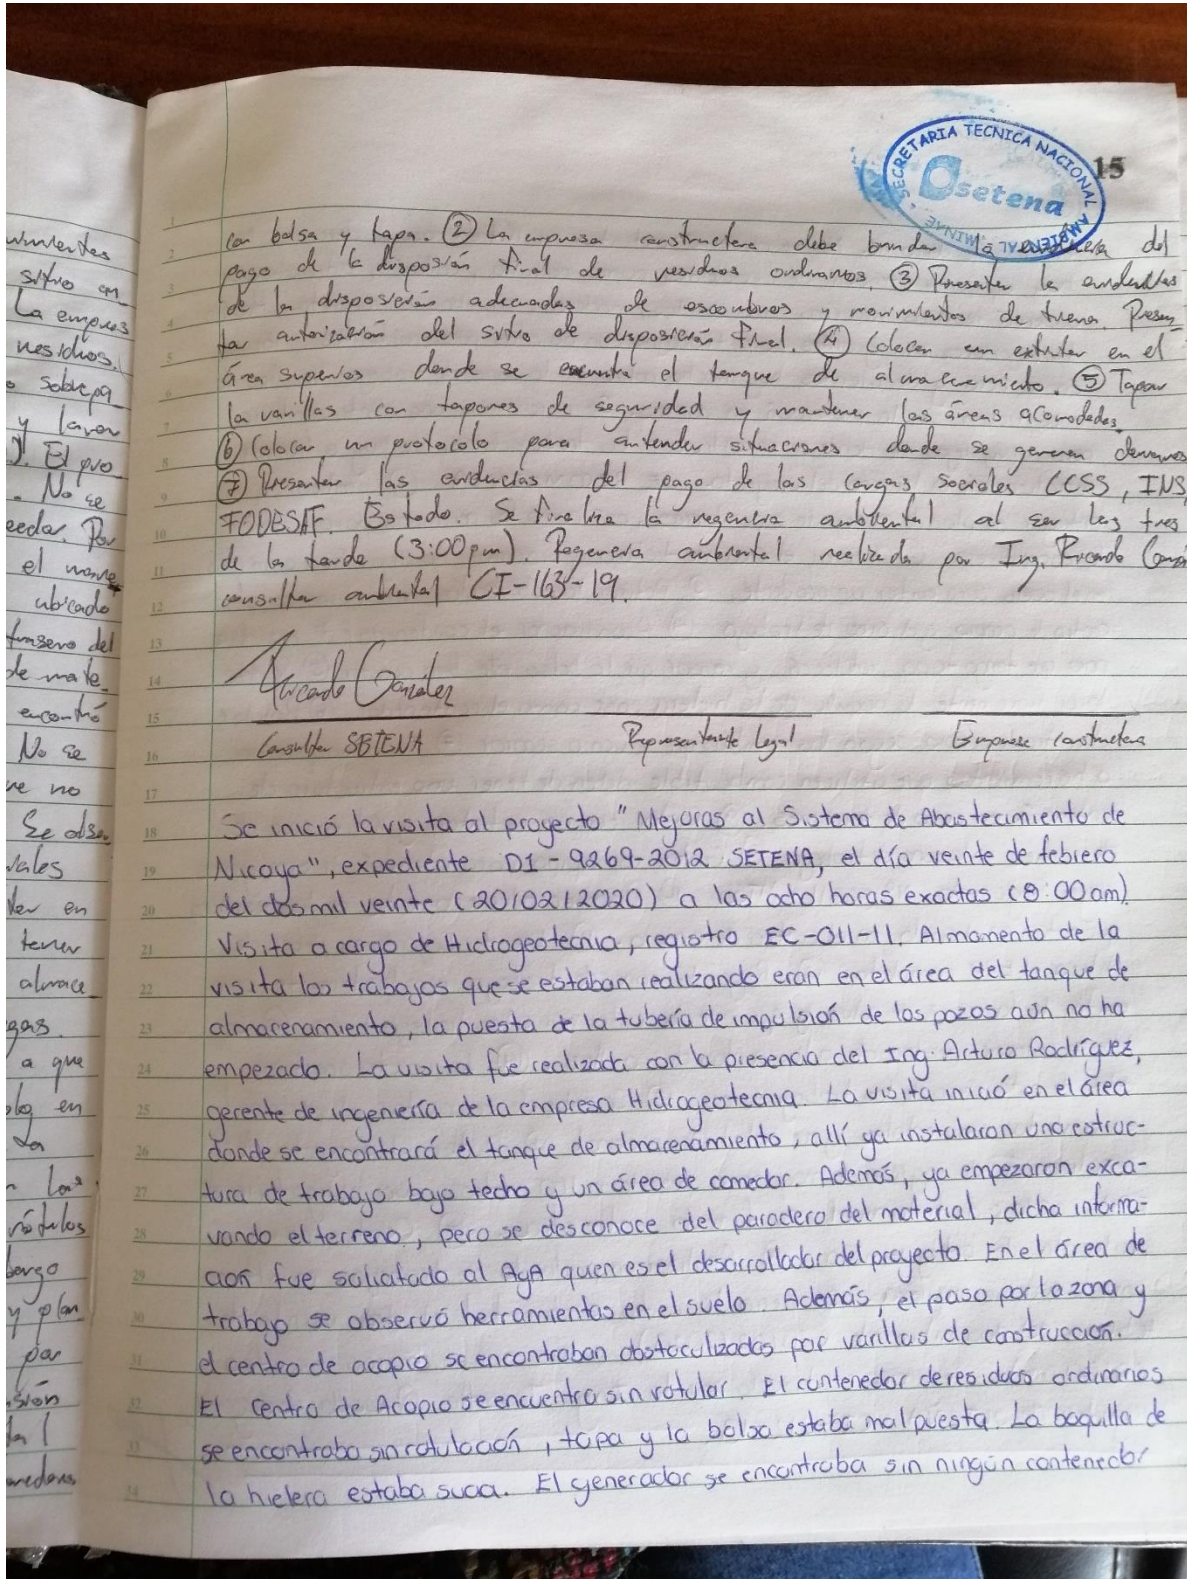 SECRETARIA TECNICA NACIONAL AMBIENTAL MINAE
setena
15
con bolsa y tapa. ② La empresa constructora debe brindar la del
pago de la disposición final de residuos ordinarios. ③ Presentar las evidencias
de la disposición adecuadas de escombros y movimientos de tierra. Presen
tar autorización del sitio de disposición final. ④ Colocar un extintor en el
área superior donde se encuentra el tanque de almacenamiento. ⑤ Tapar
la varillas con tapones de seguridad y mantener las áreas acomodadas.
⑥ Colocar un protocolo para antender situaciones donde se generen derrames
⑦ Presentar las evidencias del pago de las cargas sociales CCSS, INS,
FODESAF. Estado. Se finaliza la regencia ambiental al ser las tres
de la tarde (3:00 pm). Regencia ambiental realizada por Ing. Ricardo
consultor ambiental CI-163-19.
Ricardo González
Consultor SETENA Representante Legal Empresa constructora
Se inició la visita al proyecto "Mejoras al Sistema de Abastecimiento de
Nicoya", expediente D1-9269-2012 SETENA, el día veinte de febrero
del dos mil veinte (20/02/2020) a las ocho horas exactas (8:00am)
Visita a cargo de Hidrogeotecnia, registro EC-011-11. Al momento de la
visita los trabajos que se estaban realizando eran en el área del tanque de
almacenamiento, la puesta de la tubería de impulsión de los pozos aún no ha
empezado. La visita fue realizada con la presencia del Ing. Arturo Rodríguez,
gerente de ingeniería de la empresa Hidrogeotecnia. La visita inició en el área
donde se encontrará el tanque de almacenamiento, allí ya instalaron una estruc-
tura de trabajo bajo techo y un área de comedor. Además, ya empezaron exca-
vando el terreno, pero se desconoce del paradero del material, dicha informa-
ción fue solicitado al AyA quen es el desarrollador del proyecto. En el área de
trabajo se observó herramientas en el suelo. Además, el paso por la zona y
el centro de acopio se encontraban obstaculizados por varillas de construcción.
El Centro de Acopio se encuentra sin rotular. El contenedor de residuos ordinarios
se encontraba sin rotulación, tapa y la bolsa estaba mal puesta. La boquilla de
la hielera estaba sucia. El generador se encontraba sin ningún contenedor